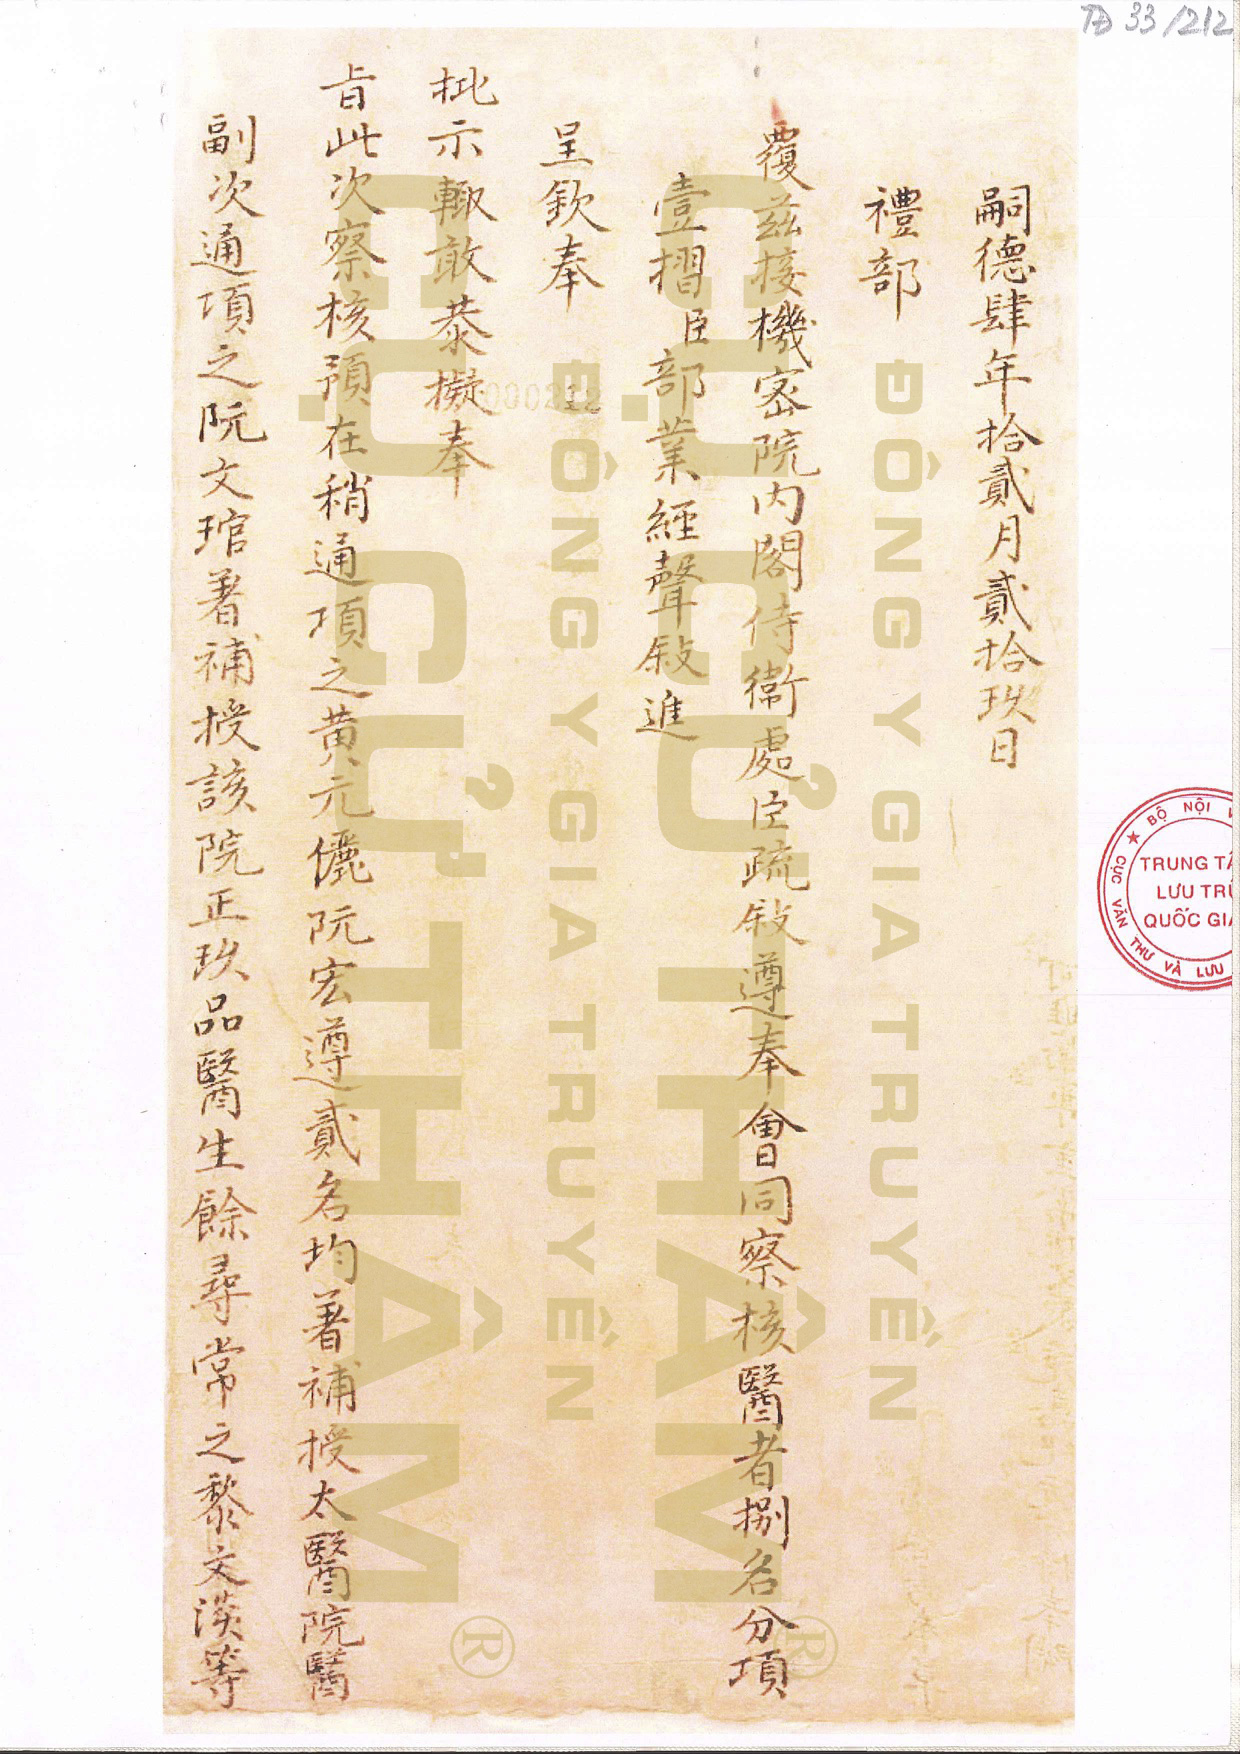 TĐ 33/212
嗣德肆年拾貳月貳拾玖日
禮部
覆茲接機密院內閣侍衛處臣疏敍遵奉會同察核醫者捌名分項
壹摺臣部業經聲敍進
呈欽奉
批示輒敢恭擬奉
旨此次察核預在稍通項之黄元儷阮宏遵貳名均著補授太醫院醫
副次通項之阮文琯著補授該院正玖品醫生餘尋常之黎文淡等
000212
CỤ CỬ THÂM®
ĐÔNG Y GIA TRUYỀN
CỤ CỬ THÂM®
ĐÔNG Y GIA TRUYỀN
★ BỘ NỘI
CỤC VĂN THƯ VÀ LƯU
TRUNG TÂ
LƯU TRỮ
QUỐC GIA